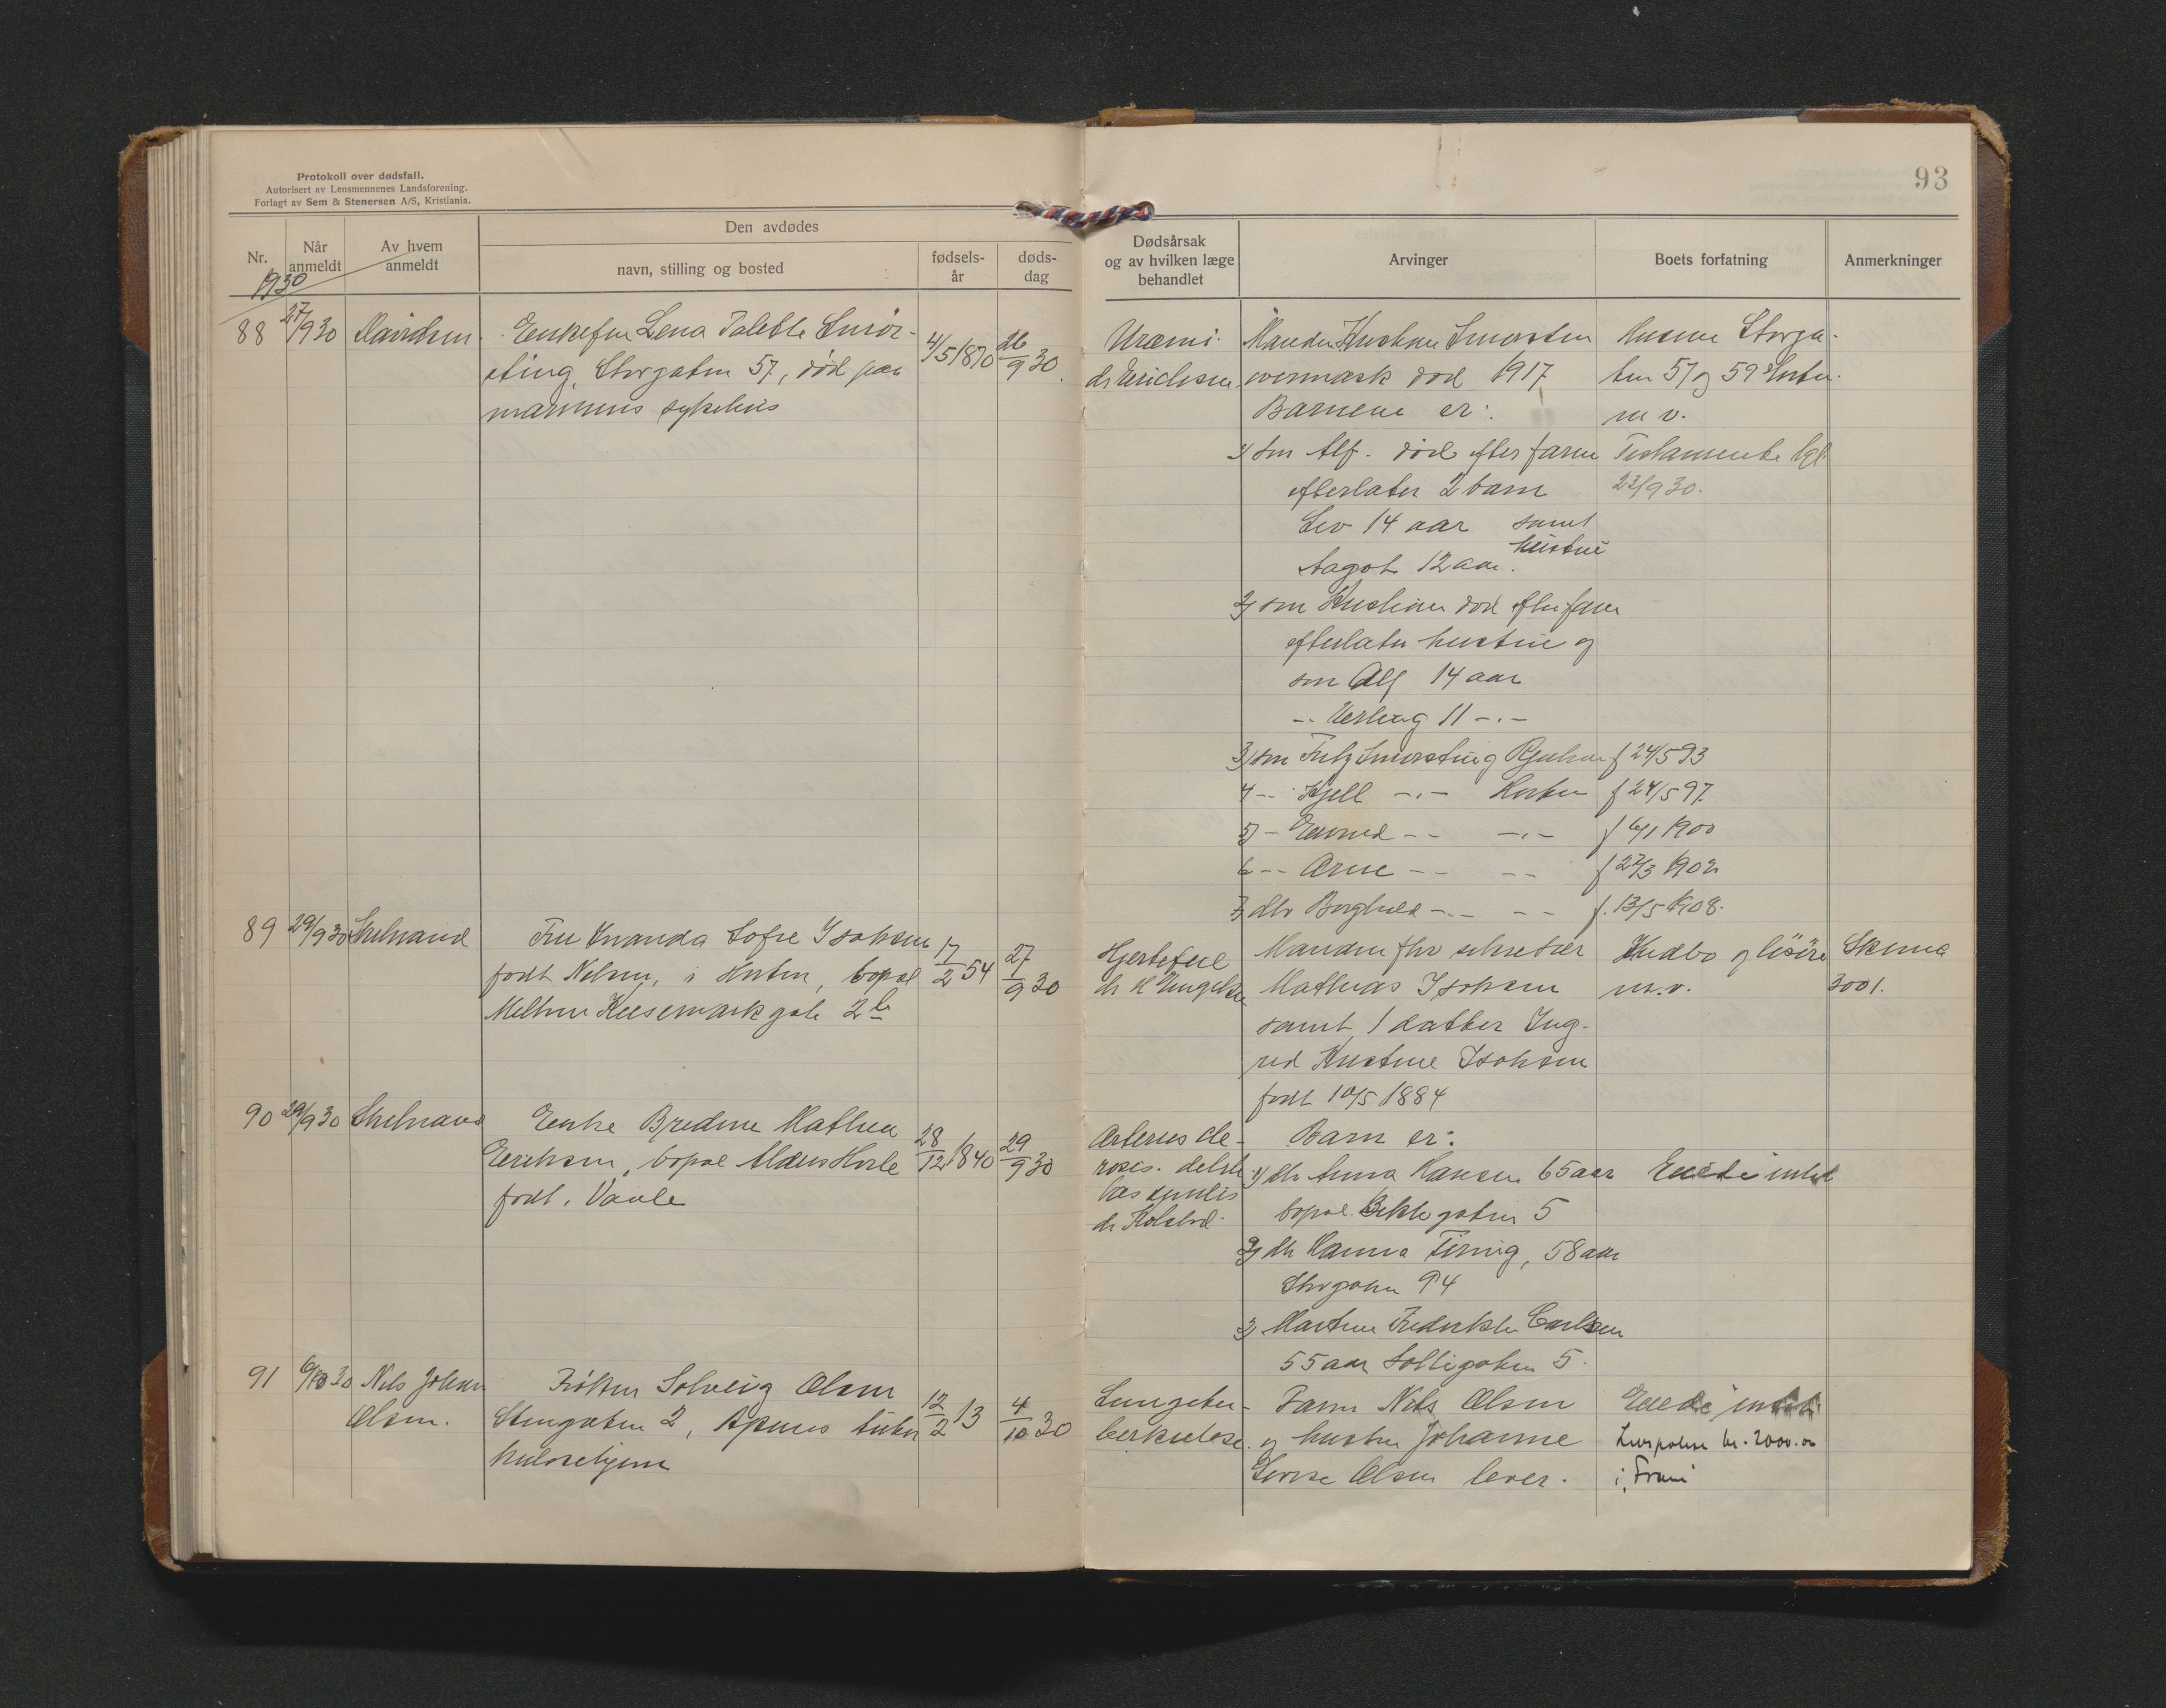 Protokoll over dødsfall.
Autorisert av Lensmennenes Landsforening.
Forlagt av Sem & Stenersen A/S, Kristiania.
Nr.
Når anmeldt
Av hvem anmeldt
Den avdødes
navn, stilling og bosted
fødselsår
dødsdag
1930
88 27/9 30
Enkefru Lena Talette Smør-
sting, Storgaten 57, død paa
marinens sykehus
4/5 1870
26/9 30
89 29/9 30 Skelnand
Fru Amanda Sofie Isaksen
født Nelsen, i Horten, bopæl
gate 2 b
17/2 54
27/9 30
90 29/9 30 Skelnand
Enke Bredine Mathea
Eriksen, bopæl
født i Vaale
28/12 1840
29/9 30
91 6/10 30 Nils Johan
Olsen.
Frøken Solveig Olsen
Stengaten 2, Apenes tuber
kulosehjem
12/2 13
4/10 30
93
Dødsårsak
og av hvilken læge
behandlet
Arvinger
Boets forfatning
Anmerkninger
Uræmi.
dr Erichsen
Manden Kristian Smørsten
død 1917
Barnene er:
1) søn Alf. død efter faren
efterlater 2 barn
Liv 14 aar samt
hustru
Aagot 12 aar.
2) søn Kristian død efter faren
efterlater hustru og
søn Alf 14 aar
-- 11 -.-
3) søn Fritz Smørsting Rjukan f 24/5 93
4 -- Kjell -.- Horten f 24/5 97
5) - -- -.- f 6/1 1900
6 -- Arne -- -- f 27/3 1902
7) dtr Borghild -.- -- f. 13/5 1908.
Husene Storga-
ten 57 og 59 Horten
m v.
Testamente
23/9 30.
Hjertefeil
dr
Manden fhv sekretær
Mathias Isaksen
samt 1 datter Ing-
rid Kristine Isaksen
født 10/5 1884
Indbo og løsøre
m.v.
3001.
Arterioscle-
rosis.
dr
Barn er:
1) dtr Anna Hansen 65 aar
bopæl gaten 5
2) dtr Hanna , 58 aar
Storgaten 94
3) Martine Fredrikke Carlsen
55 aar Solligaten 5.
Eiedei intet
Lungetu-
berkulose.
Faren Nils Olsen
og hustru Johanne
Lovise Olsen lever.
Eiede intet
Livspolise kr. 2000.00
i "Fram"